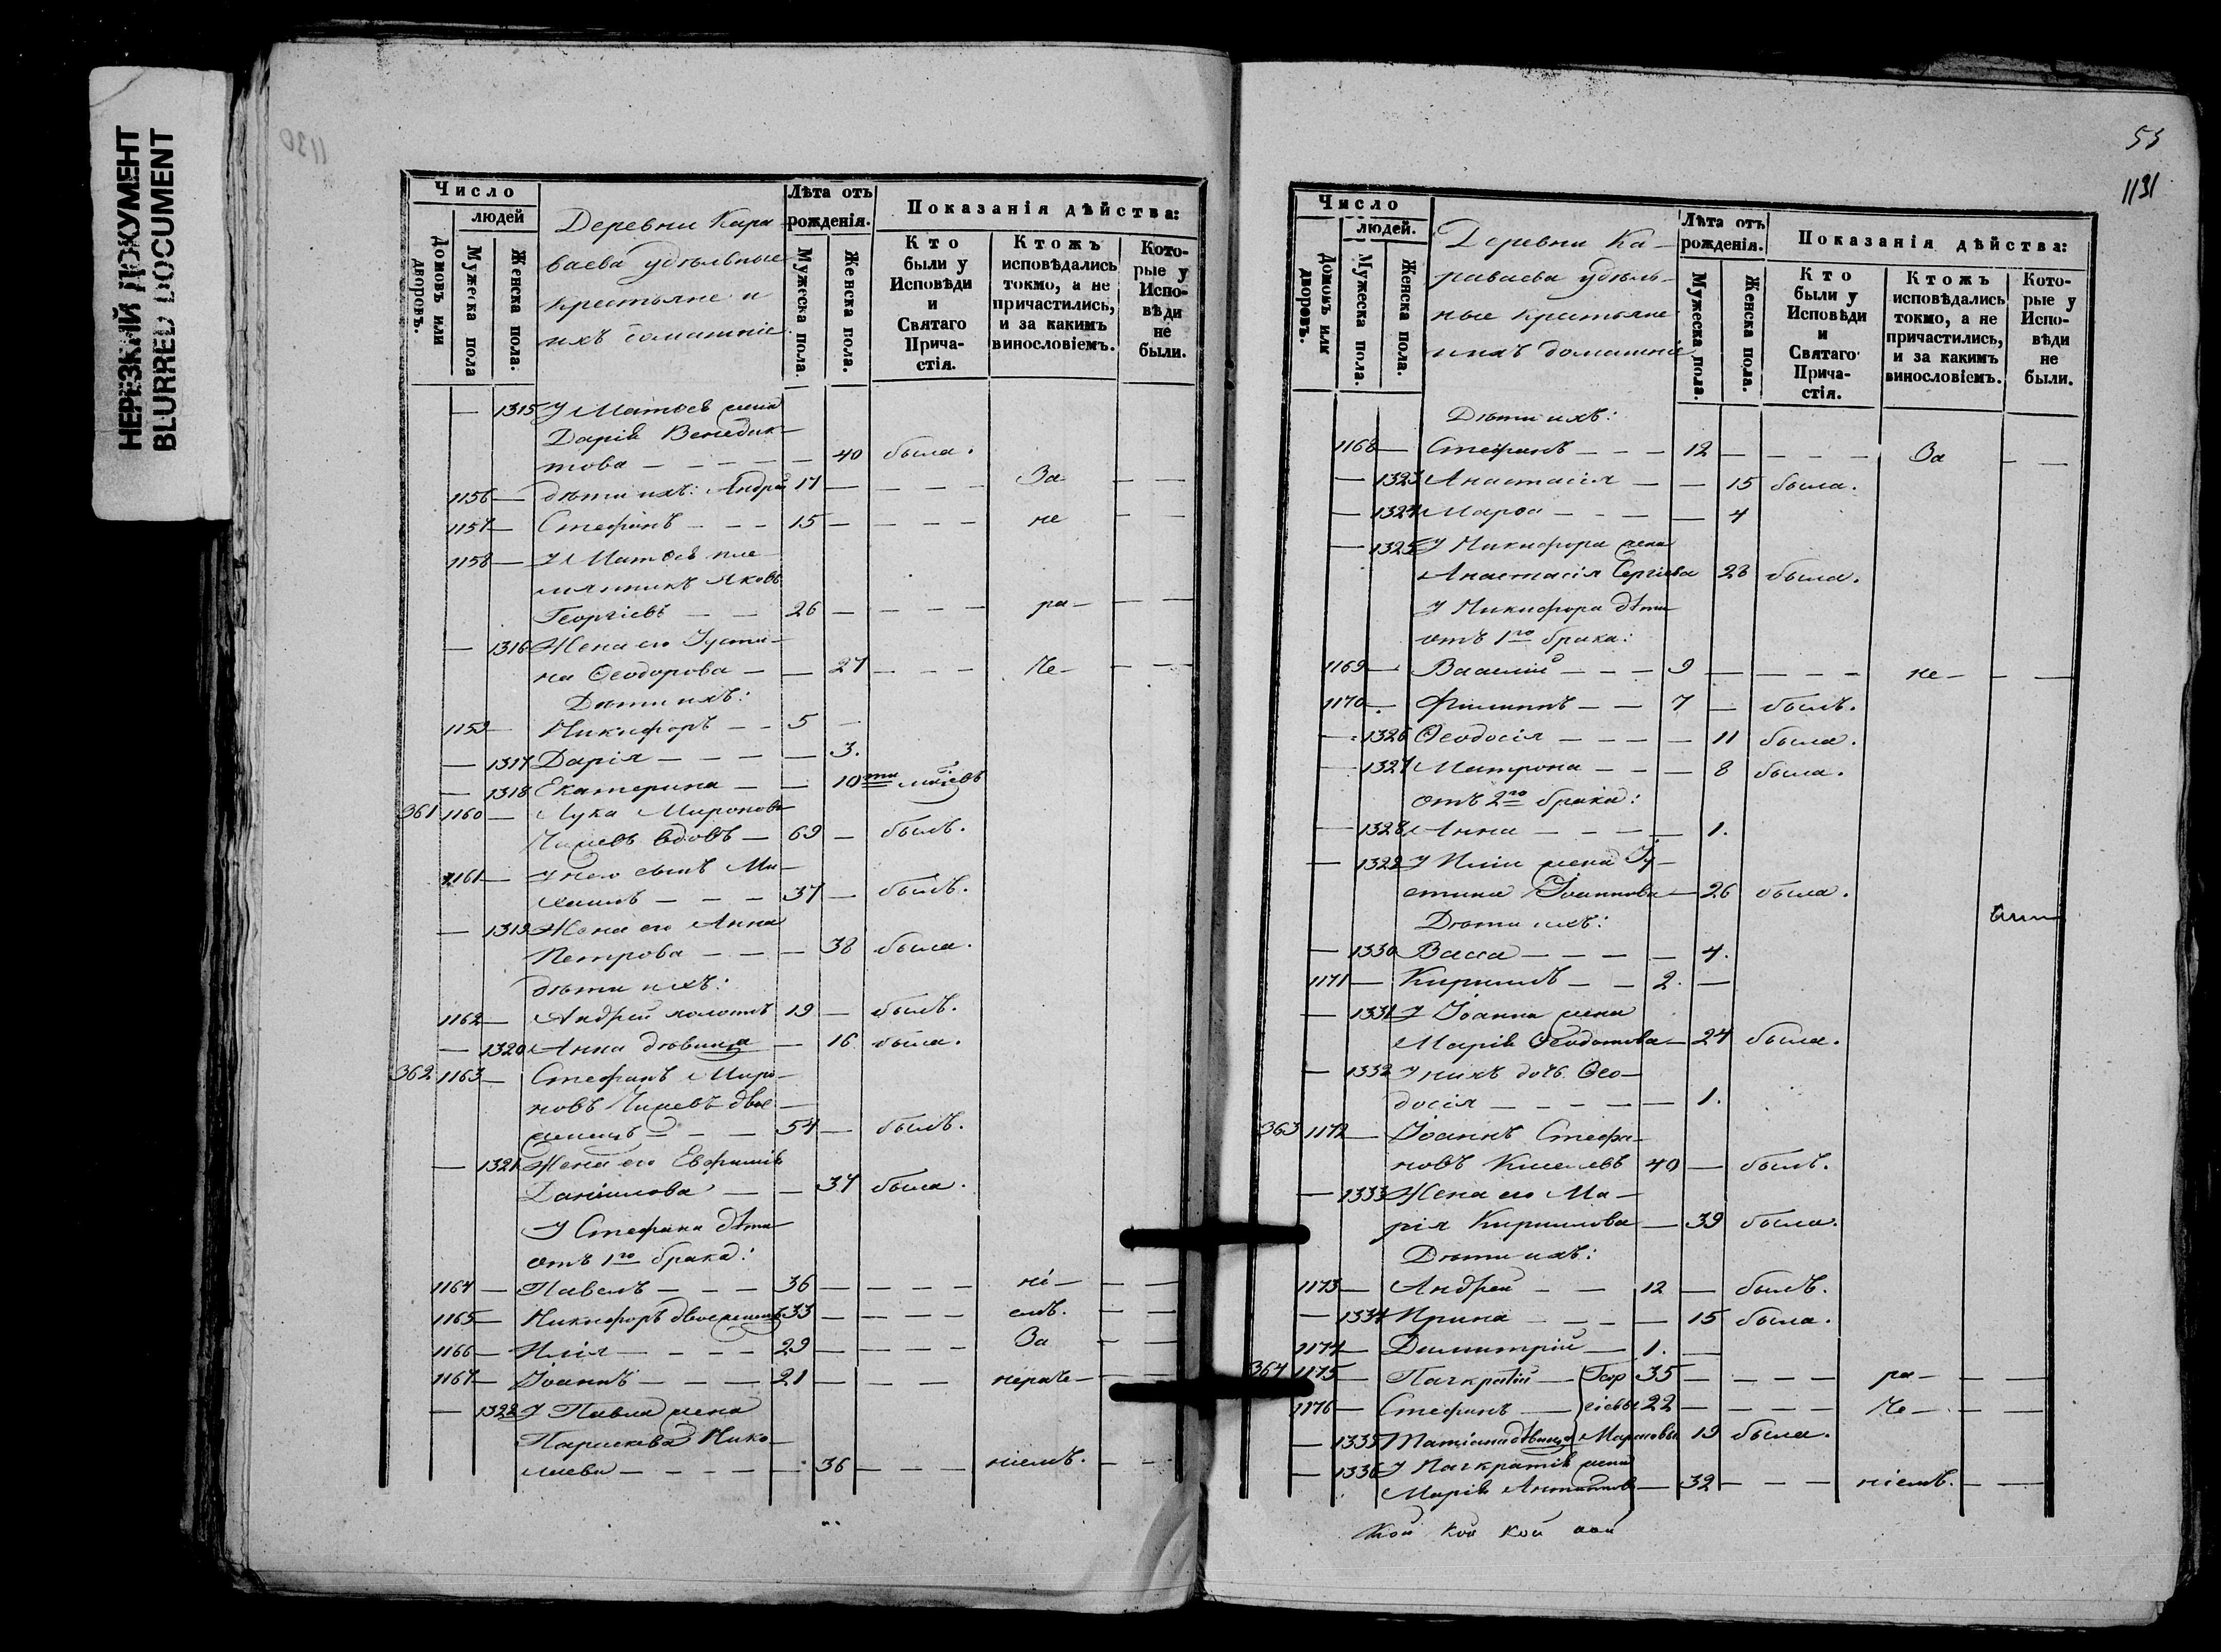 НЕРЕЗКИЙ ДОКУМЕНТ
BLURRED DOCUMENT
1130
Число
людей
Домовъ или дворовъ.
Мужеска пола
Женска пола.
Деревни Кара
ваева удѣльные
крестьяне и
ихъ домашніе
Лѣта отъ рожденія.
Мужеска пола.
Женска пола.
Показанія дѣйства:
Кто были у Исповѣди и Святаго Прича-стія.
Ктожъ исповѣдались токмо, а не причастились, и за какимъ винословіемъ.
Кото-рые у Испо-вѣди не были.
— 1315 У Матѳея жена
Дарія Венедик-
това — — — — — 40 была.
1156 — дѣти ихъ: Андрей 17 — — — — За — —
1157 — Стефанъ — — — 15 — — — — не — —
1158 — У Матѳея пле
мянникъ Яковъ
Георгіевъ — — 26 — — — — ра — — —
— 1316 Жена его Іусти-
на Ѳеодорова — — 27 — — — Че — — —
Дѣти ихъ:
1159 — Никифоръ — — 5 —
— 1317 Дарія — — — — — 3.
— 1318 Екатерина — — 10ти мѣсяцъ
361 1160 — Лука Мироновъ
вдовъ — 69 — былъ.
1161 — У него сынъ Ми-
хаилъ — — — 37 — былъ.
— 1319 Жена его Анна
Петрова — — — — 38 была.
дѣти ихъ:
1162 — Андрей холостъ 19 — былъ.
— 1320 Анна дѣвица — 16 была.
362 1163 — Стефанъ Миро-
новъ двое-
женецъ — — — 54 — былъ.
— 1321 Жена его Евфимія
Даніилова — — 37 была.
У Стефана дѣти
отъ 1го брака:
1164 — Павелъ — — — 36 — — — — ні — — —
1165 — Никифоръ двоеженецъ 33 — — — — емъ. — —
1166 — Илія — — — — 29 — — — — За — —
1167 — Іоаннъ — — — 21 — — — — нераче — — —
— 1322 У Павла жена
Параскева Нико-
лаева — — — — — 36 — — — ніемъ. — —
53
1131
Число
людей.
Домовъ или дворовъ.
Мужеска пола.
Женска пола.
Деревни Ка-
раваева удѣль-
ные крестьяне
и ихъ домашніе
Лѣта отъ рожденія.
Мужеска пола.
Женска пола.
Показанія дѣйства:
Кто были у Исповѣди и Святаго Прича-стія.
Ктожъ исповѣдались токмо, а не причастились, и за какимъ винословіемъ.
Кото-рые у Испо-вѣди не были.
Дѣти ихъ:
1168 — Стефанъ — — — 12 — — — — За — —
— 1323 Анастасія — — 15 была.
— 1324 Марѳа — — — — 4
— 1325 У Никифора жена
Анастасія Сергіева 28 была.
У Никифора дѣти
отъ 1го брака:
1169 — Василій — — — 9 — — — — не — — —
1170 — Филиппъ — — 7 — былъ.
— 1326 Ѳеодосія — — — — 11 была.
— 1327 Матрона — — — 8 была.
отъ 2го брака:
— 1328 Анна — — — — 1.
— 1329 У Иліи жена Іу-
стина Іоаннова — 26 была.
Дѣти ихъ:
— 1330 Васса — — — — — 4.
1171 — Кириллъ — — 2. —
— 1331 У Іоанна жена
Марія Ѳеодотова — 24 была.
— 1332 У нихъ дочь Ѳео-
досія — — — — — 1.
363 1172 — Іоаннъ Стефа-
новъ Киселевъ 40 — былъ.
— 1333 Жена его Ма-
рія Кириллова — 39 была.
Дѣти ихъ:
1173 — Андрей — — 12 — былъ.
— 1334 Ирина — — — — 15 была.
1174 — Димитрій — 1. —
364 1175 — Панкратій — Геор 35 — — — — ра — — —
1176 — Стефанъ — гіевы 22 — — — — Че — — —
— 1335 Татіана дѣвица 19 была.
— 1336 У Панкратія жена
Марія — 32 — — — ніемъ. — —